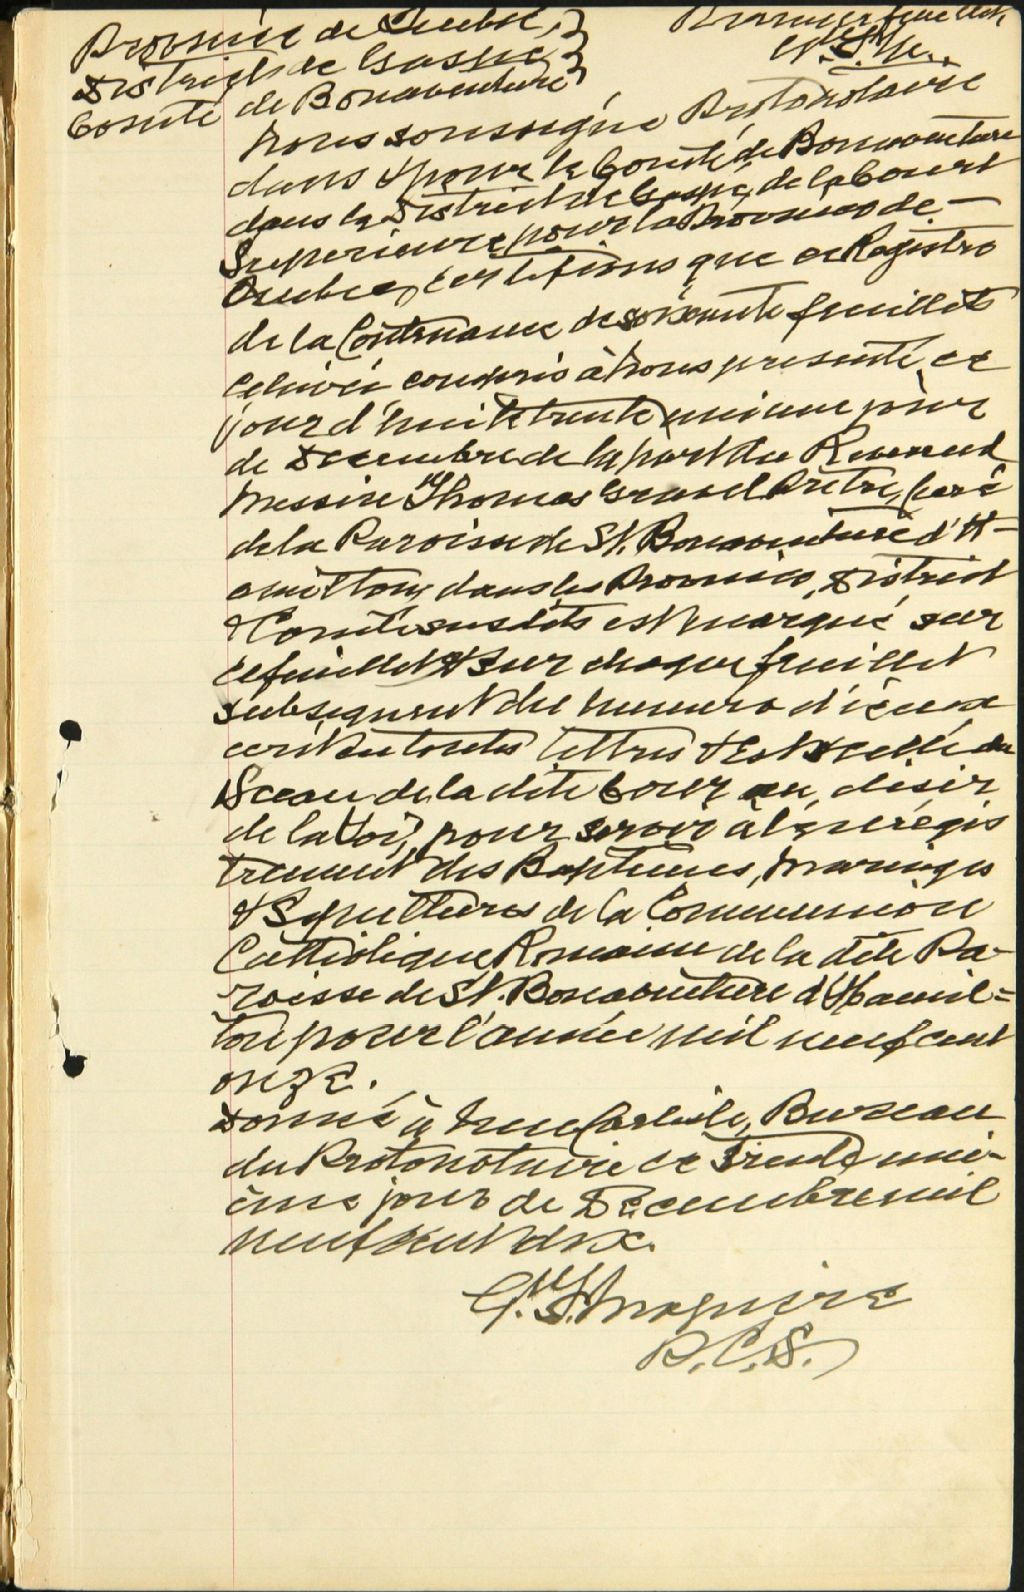 Province de Québec,
District de Gaspé
Comté de Bonaventure
Premier feuillet
Nous soussigné Protonotaire
dans & pour le Comté de Bonaventure
dans le District de Gaspé, de la Cour
Superieure pour la Province de
Quebec, certifions que ce Registre
de la Contenance de soixante feuillets
celui ci compris à nous presenté, ce
jour d'huil trente unieme jour
de Decembre de la part du Reverend
Messire Thomas Gravel Prêtre, Curé
de la Paroisse de St. Bonaventure d'H-
amilton, dans les Province, District
& Comté susdits est marqué sur
ce feuillet & sur chaque feuillet
subsequent du numero d'iceux
ecrit en toutes lettres & est scellé du
Sceau de la dite Cour au désir
de la Loi, pour servir à l'enrégis
trement des Baptemes, Mariages
& Sepultures de la Communion
Catholique Romaine de la dite Pa-
roisse de St. Bonaventure d'Hamil=
ton pour l'année mil neuf cent
onze.
Donné à New Carlisle, Bureau
du Protonotaire ce trente uni-
ème jour de Decembre mil
neuf cent dix.
Maguire
P.C.S.